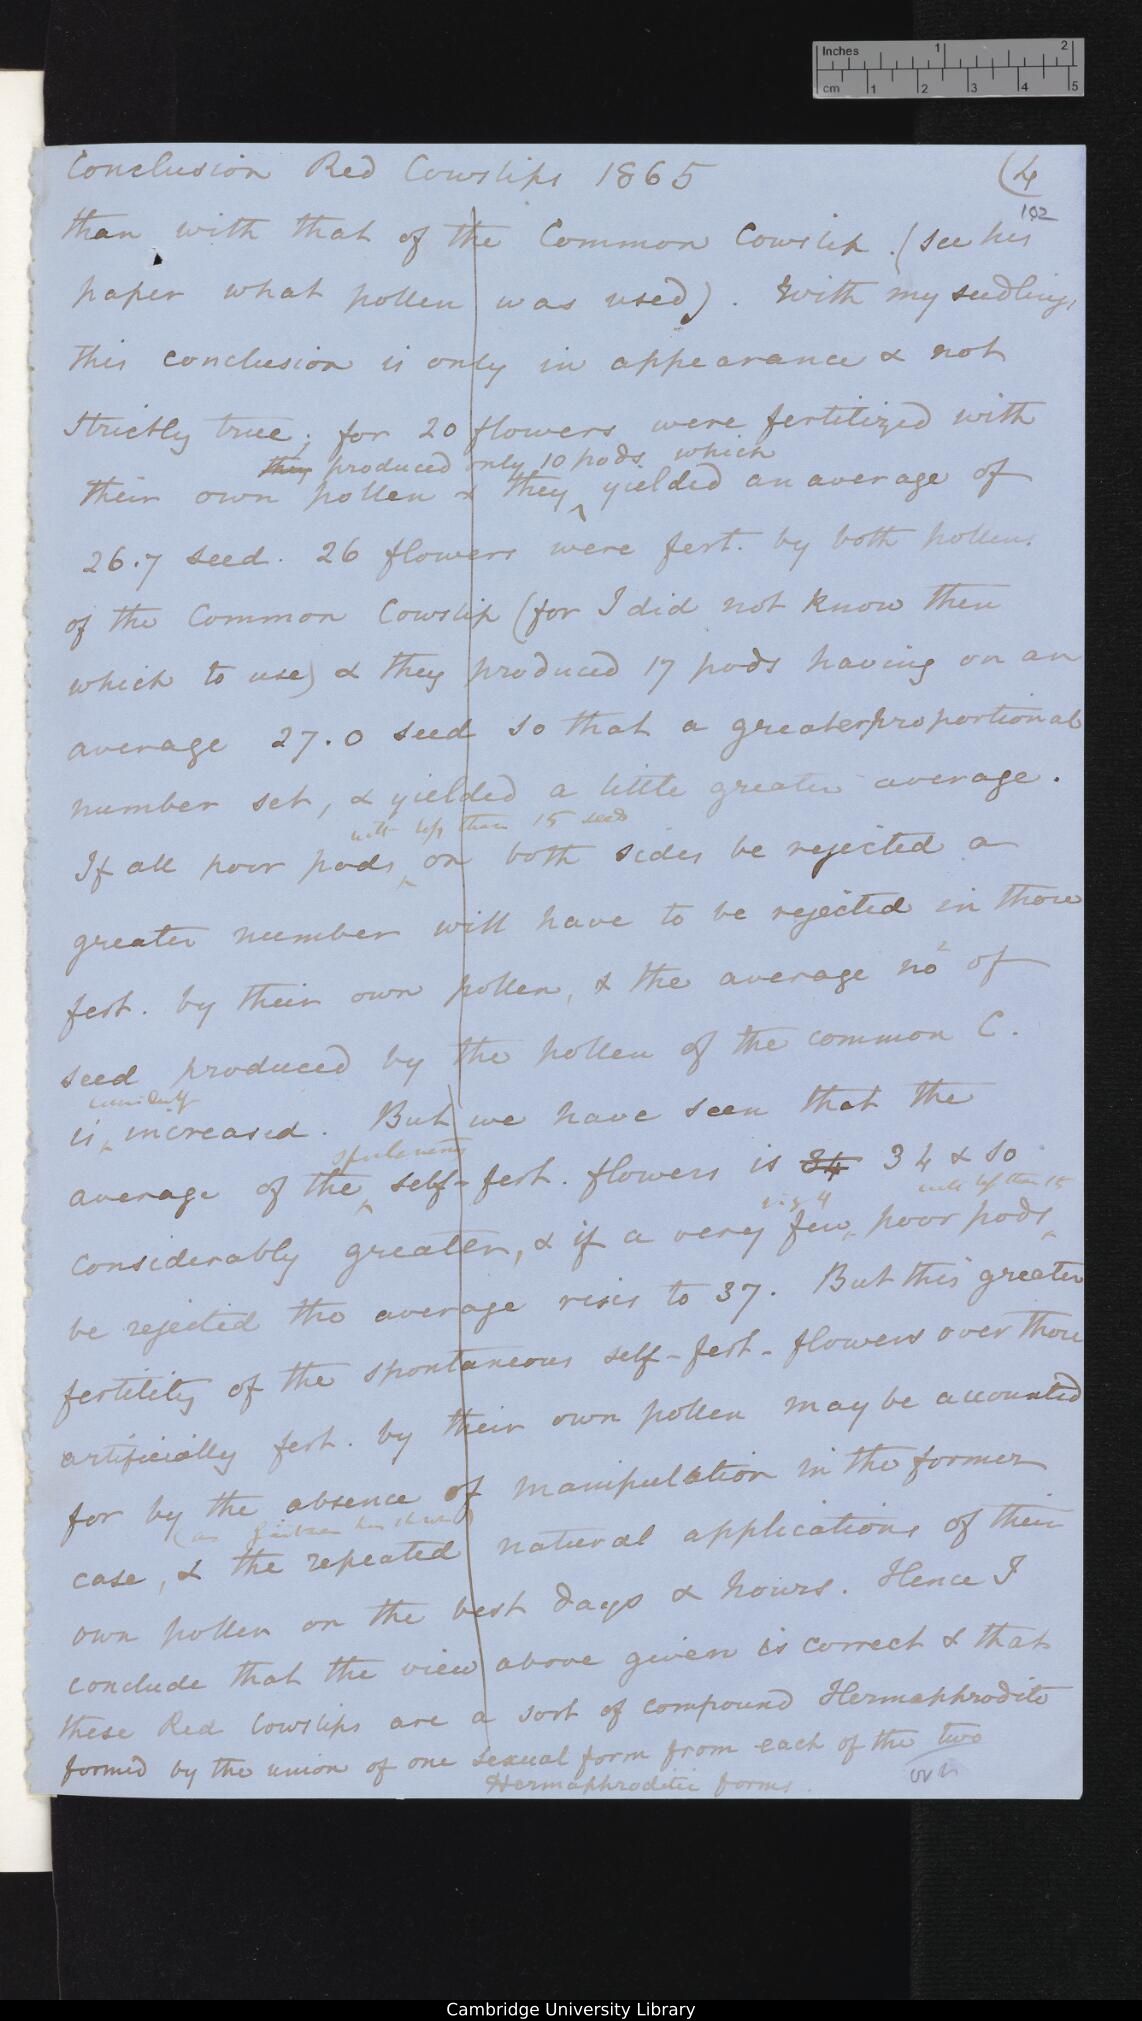 Inches 1 2
cm 1 2 3 4 5
Conclusion Red Cowslips 1865 (4
102
than with that of the Common Cowslip. (see his
paper what pollen was used). With my seedlings,
this conclusion is only in appearance & not
strictly true; for 20 flowers were fertilized with
they produced only 10 pods which
their own pollen & they yielded an average of
26.7 seed. 26 flowers were fert. by both pollens
of the Common Cowslip (for I did not know then
which to use) & they produced 17 pods having on an
average 27.0 seed so that a greater proportional
number set, & yielded a little greater average.
with less than 15 seeds
If all poor pods on both sides be rejected a
greater number will have to be rejected in those
fert. by their own pollen, & the average no of
seed produced by the pollen of the common C.
is increased. But we have seen that the
average of the self-fert. flowers is 34 34 & so
viz 4 with less than 15
considerably greater, & if a very few poor pods
be rejected the average rises to 37. But this greater
fertility of the spontaneous self-fert. flowers over those
artificially fert. by their own pollen may be accounted
for by the absence of manipulation in the former
(as Gärtner has shown)
case, & the repeated natural applications of their
own pollen on the best days & hours. Hence I
conclude that the view above given is correct & that
these Red Cowslips are a sort of compound Hermaphrodite
formed by the union of one sexual form from each of the two
Hermaphroditic forms.
over
Cambridge University Library